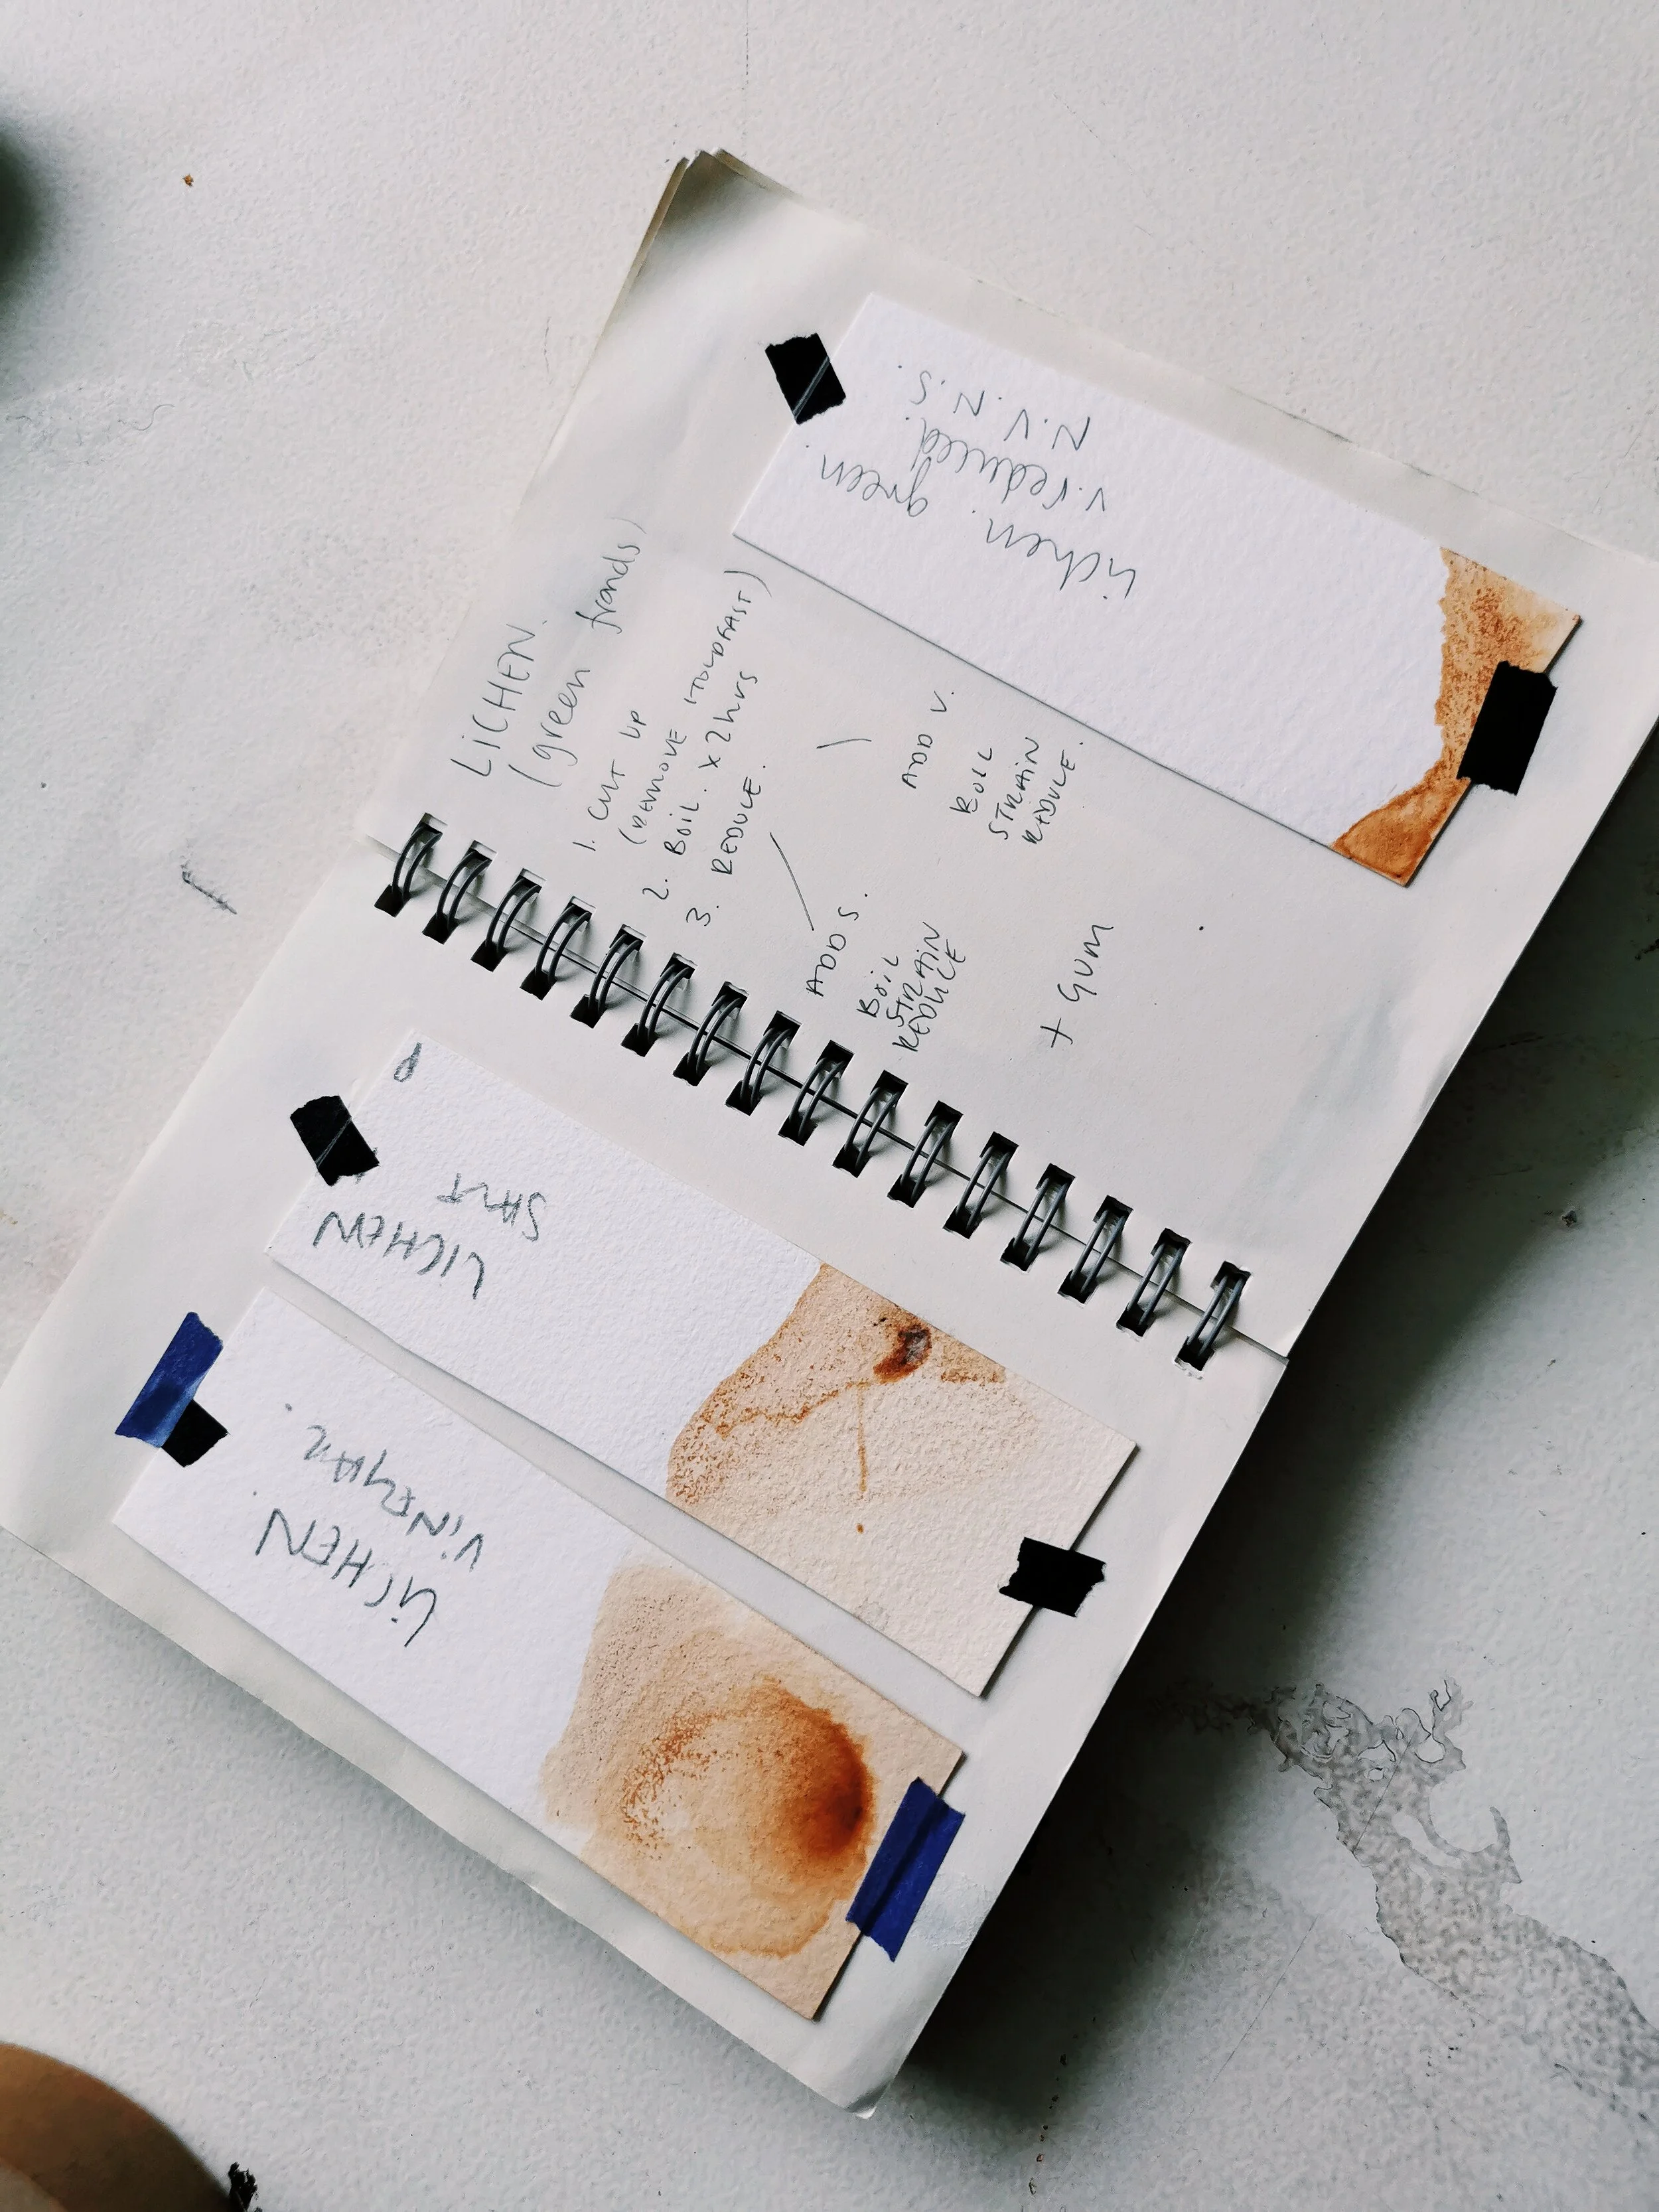 LICHEN.
(green fronds)
1. CUT UP
(REMOVE HOLDFAST)
2. BOIL. x 2hrs
3. REDUCE.
ADD S.
BOIL
STRAIN
REDUCE
ADD V.
BOIL
STRAIN
REDUCE.
+ GUM
lichen. green.
v. reduced.
N.V. N.S.
LICHEN
SALT
LICHEN
VINEGAR.